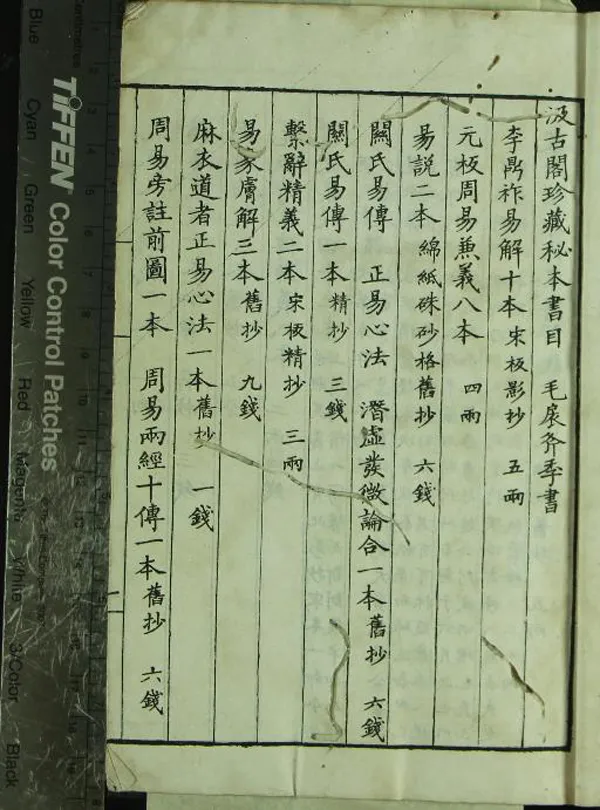 汲古閣珍藏秘本書目 毛扆斧季書
李鼎祚易解十本宋板影抄 五兩
元板周易兼義八本 四兩
易說二本綿紙硃砂格舊抄 六錢
關氏易傳 正易心法 潛虛發微論合一本舊抄 六錢
關氏易傳一本精抄 三錢
繫辭精義二本宋板精抄 三兩
易家膚解三本舊抄 九錢
麻衣道者正易心法一本舊抄 一錢
周易旁註前圖一本 周易兩經十傳一本舊抄 六錢
TIFFEN Color Control Patches
Blue Cyan Green Yellow Red Magenta White 3/Color Black
Centimetres